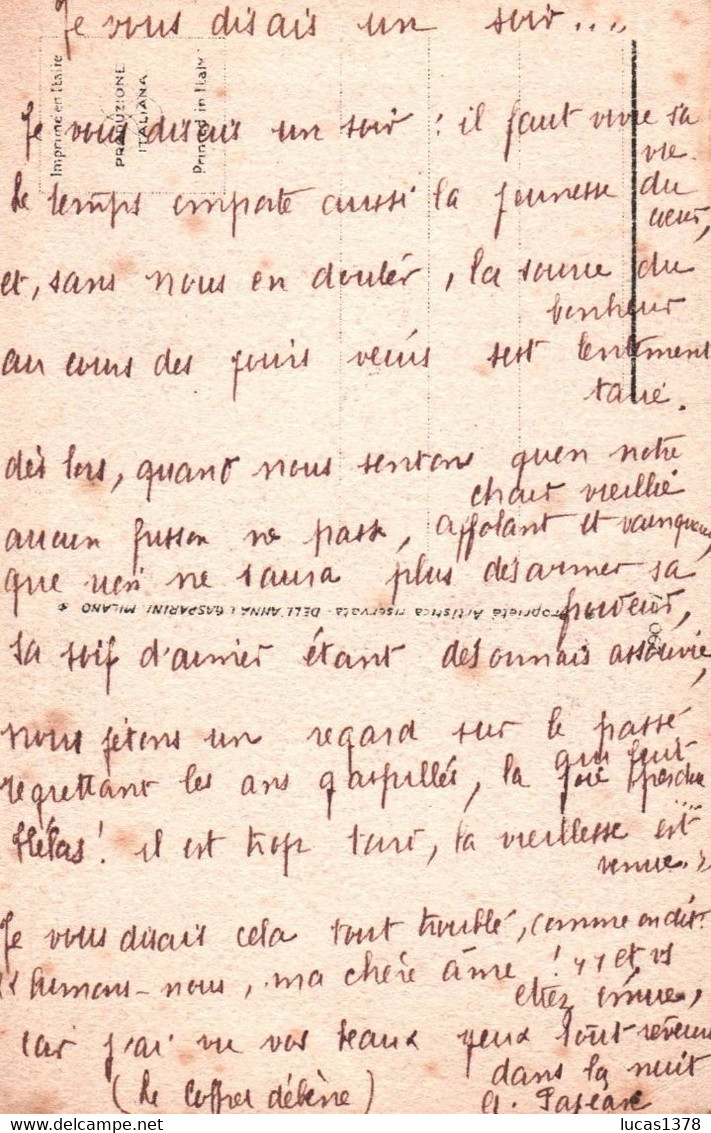 Je vous disais un soir....
Imprimé en Italie
PRODUZIONE
ITALIANA
Printed in Italy
Je vous disais un soir : il faut vivre sa
vie.
Le temps emporte aussi la jeunesse du
cœur,
et, sans nous en douter, la source du
bonheur
au cours des jours vécus s'est lentement
tarie.
dès lors, quand nous sentons qu'en notre
chair vieillie
aucun frisson ne passe, affolant et vainqueur,
que rien ne saura plus désarmer sa
Proprietà Artistica riservata - DELL'ANNA & GASPARINI MILANO
sa soif d'aimer étant désormais assouvie,
nous jetons un regard sur le passé
qui fut
regrettant les ans gaspillés, la joie
....
Hélas ! il est trop tard, la vieillesse est
venue.
Je vous disais cela tout troublé, comme on dit :
" Aimons-nous, ma chère âme ! " et vs
étiez émue,
car j'ai vu vos beaux yeux tout rêveurs
dans la nuit
(Le Coffret d'ébène)
lucas1378